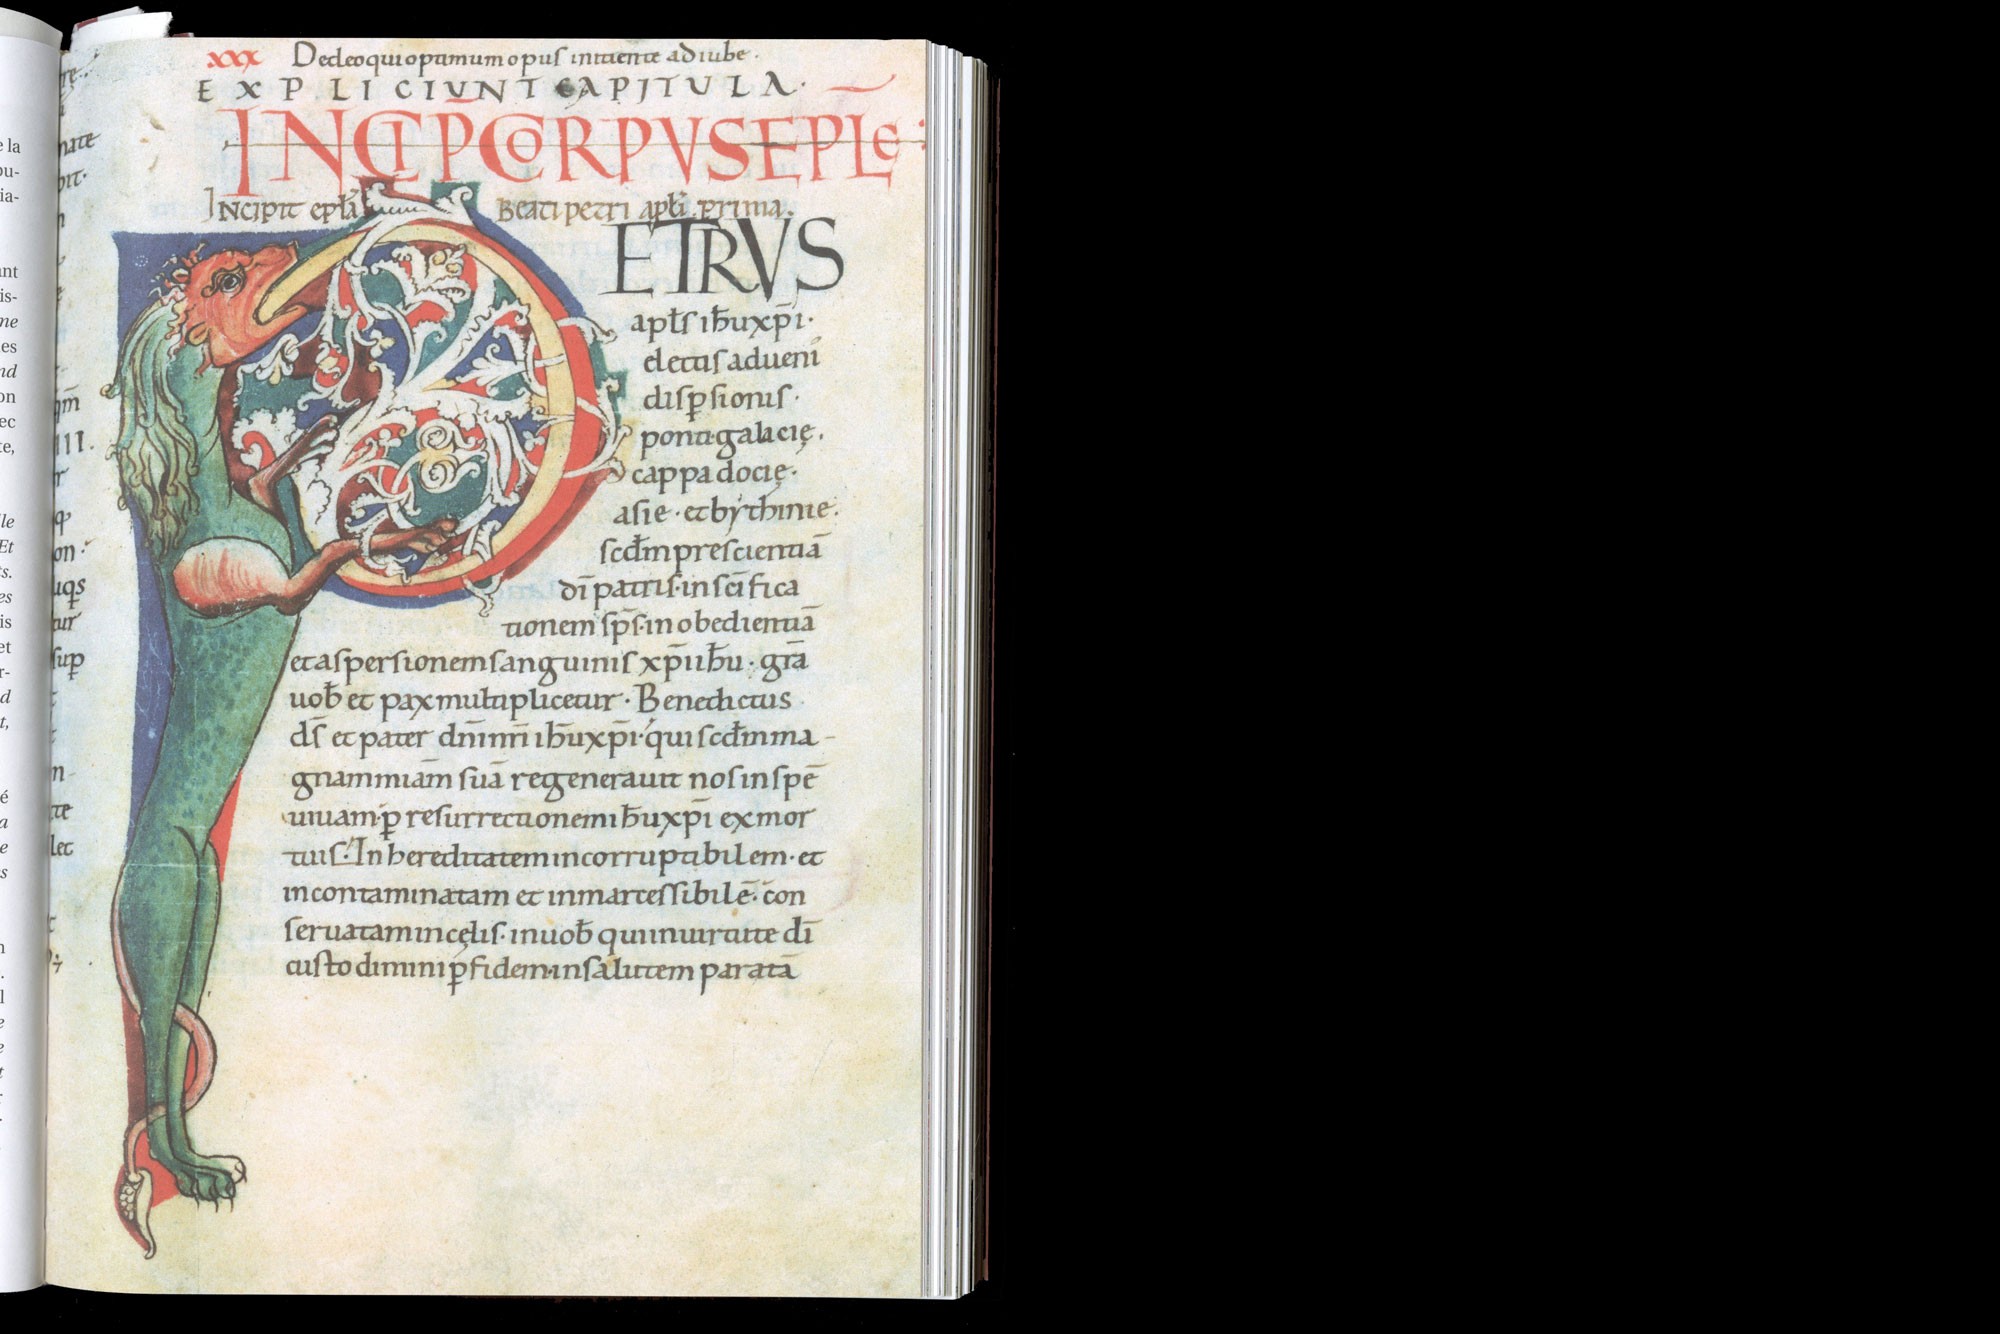 e la
ou-
ia-
ant
is-
me
es
nd
on
ec
te,
lle
Et
ts.
es
is
et
r-
d
t,
é
a
e
es
n
.
l
e
e
t
r
re..
i
nate
bit.
n
e
qm̄
III.
r
qꝫ
on.
uqs
tur
sup
t
t
n
te
lec
t
xxx Dedeo qui optimum opus initiente adiube.
EXPLICIUNT CAPITULA.
INCIP̄ CORPVS EPLE:
INCIPIT epłā Beati petri apłi prima.
ETRVS
apłs ihu xp̄i.
electis adueni
disp̱sionis.
ponti galacię.
cappadocię.
asie. et bythinie.
scdm prescientiā
dī patris. in sc̄ifica
tionem sp̄s. in obedientiā
et aspersionem sanguinis xp̄i ihu. grā
uob et pax multiplicetur. Benedictus
ds̄ et pater dn̄i nr̄i ihu xp̄i. qui scdm ma-
gnam miam̄ suā regenerauit nos in spē
uiuam. p̱ resurrectionem ihu xp̄i ex mor
tuis. In hereditatem incorruptibilem. et
incontaminatam et inmarcessibilē. con
seruatam in cęlis. in uob qui in uirtute dī
custodimini p̱ fidem. in salutem paratā